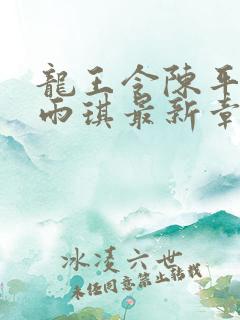 龍王令陳平
雨琪最新章
冰凌六世
未经同意禁止转载